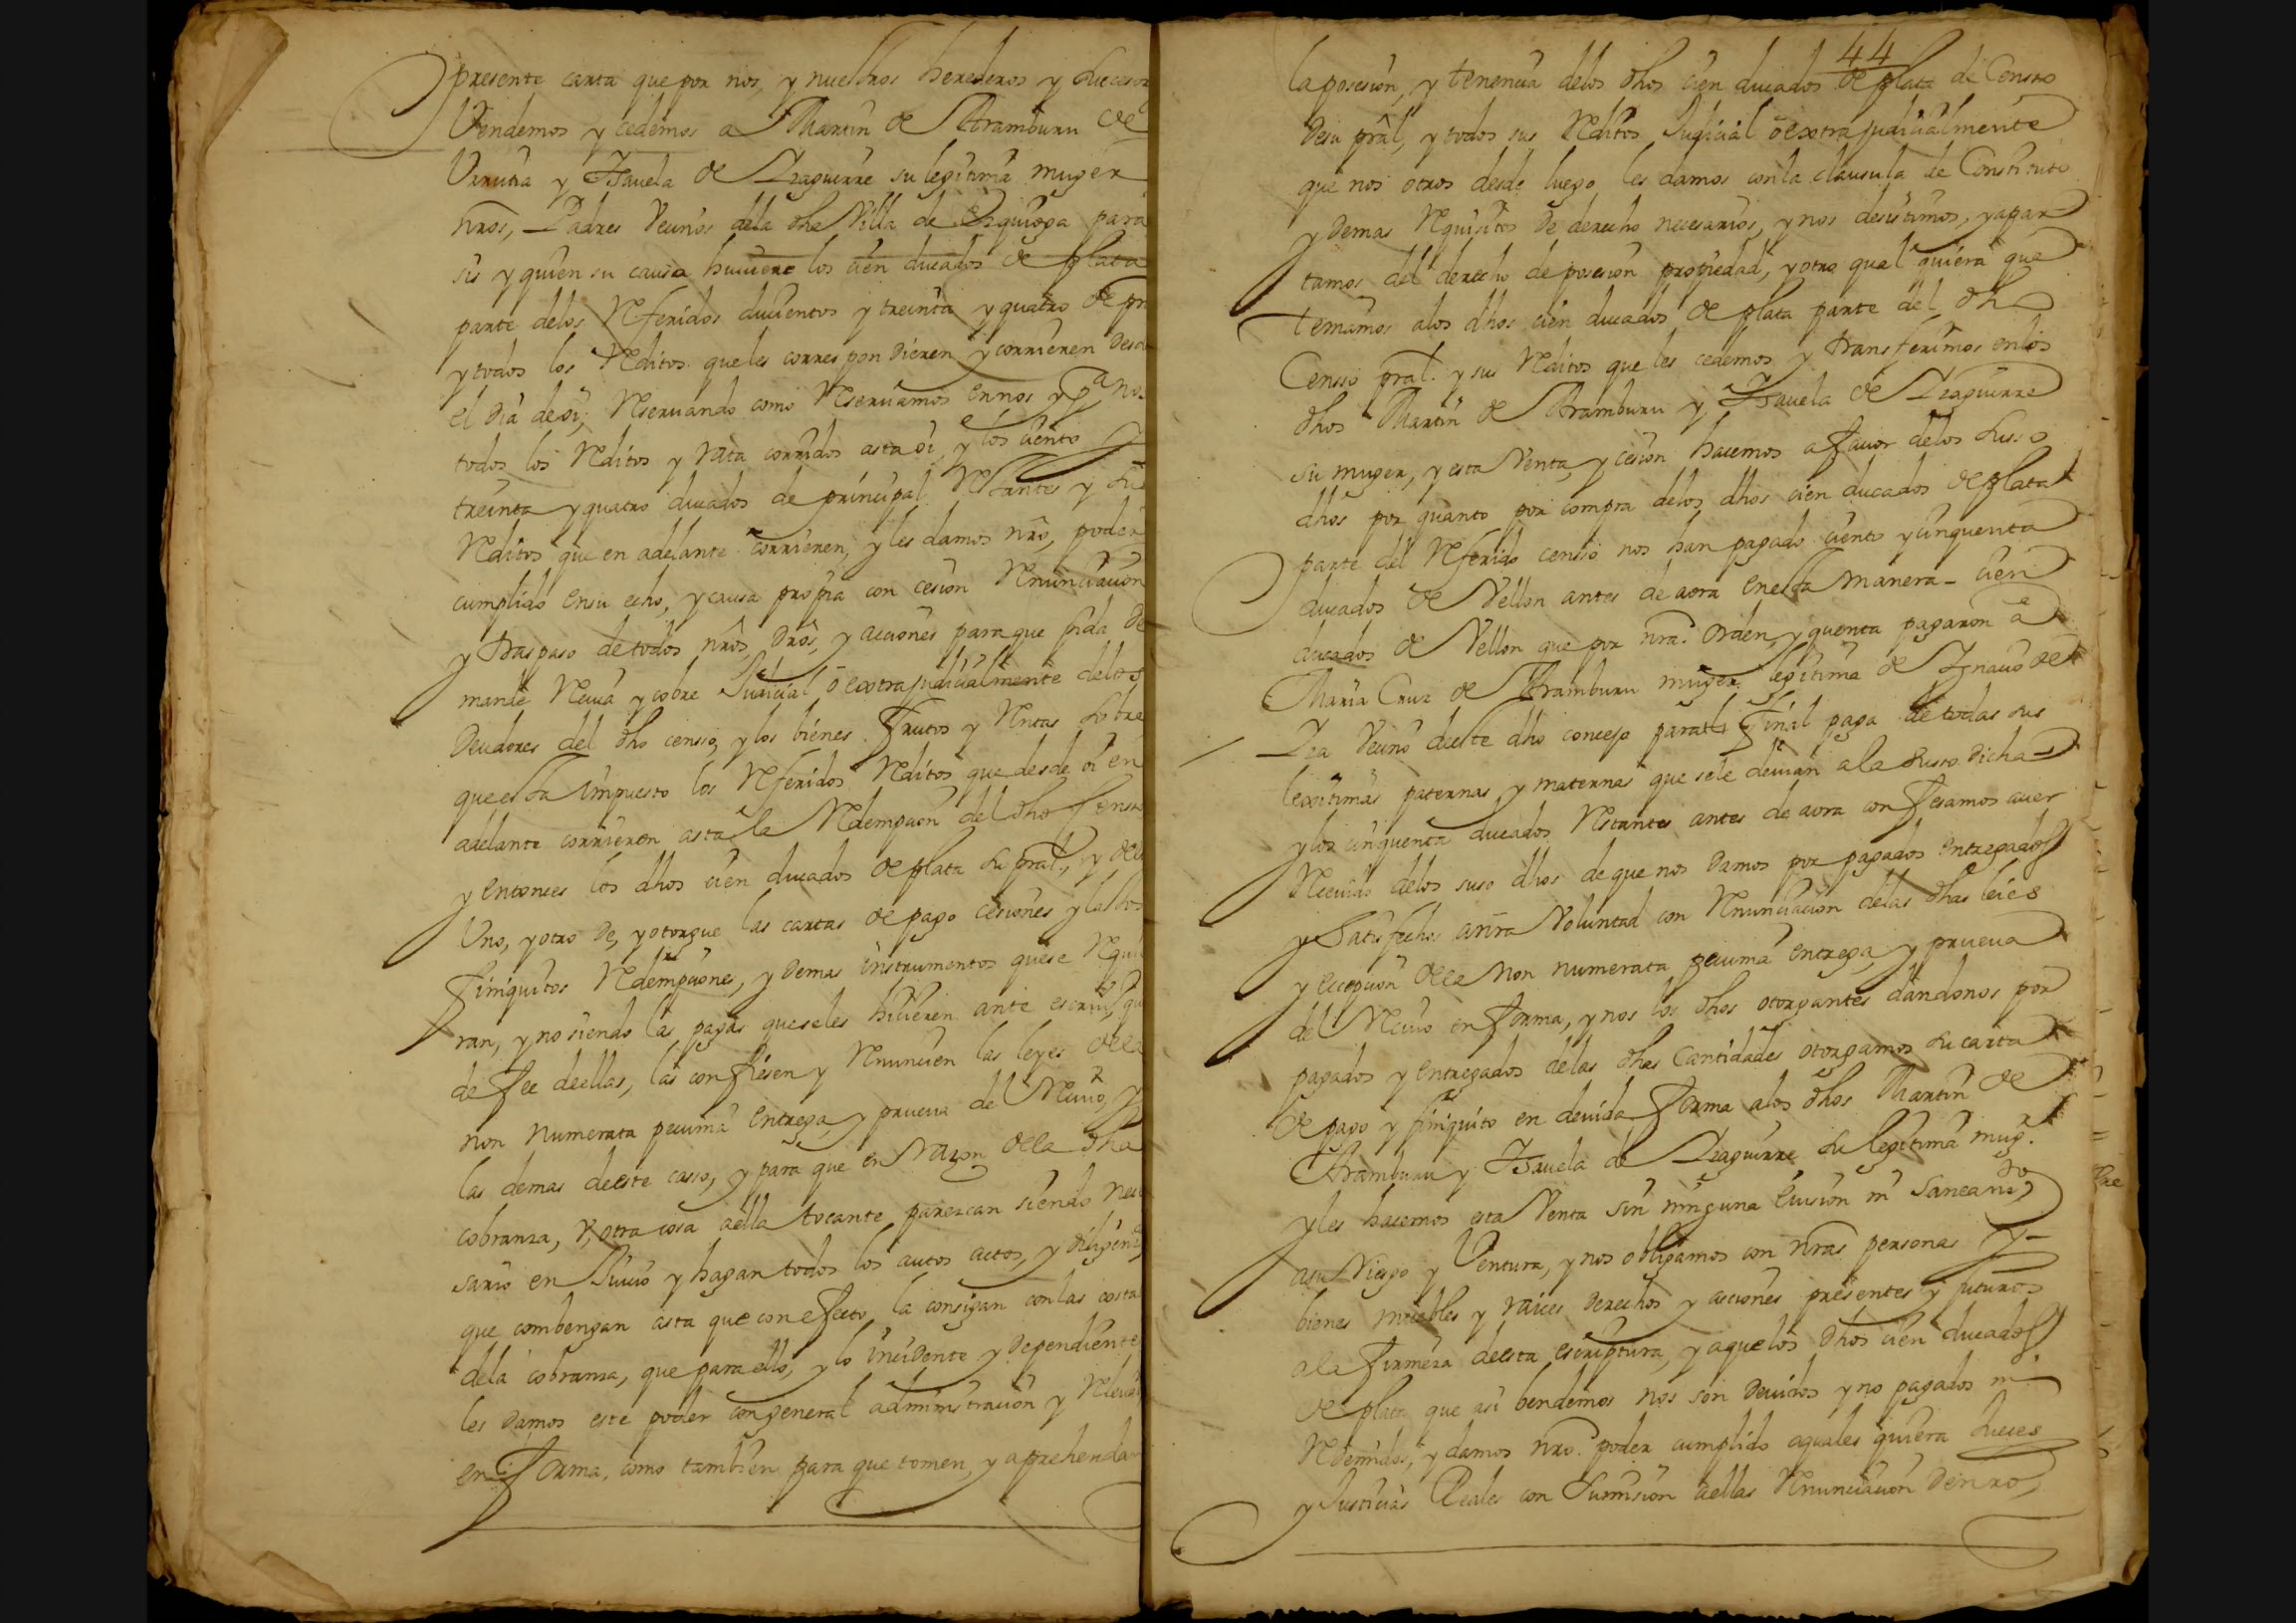 presente carta que por nos, y nuestros herederos y subcesor
Vendemos y cedemos a Martin de Aramburu de
Urrutia y Isavela de Izaguirre su legitima muger
nros, Padres Vecinos dela dha Villa de Ezquioga para
sis y quien su causa huuiere los cien ducados de plata
parte delos Referidos ducientos y treinta y quatro de pn
y todos los Reditos queles correspondieren y corrieren desde
el dia de oi, Reseruando como Reseruamos en nos y pa nos
todos los Reditos y rata corridos asta oi, y los ciento y
treinta y quatro ducados de principal Restantes y sus
Reditos que en adelante corrieren, y les damos nro, poder
cumplido ensu echo, y causa propia con cesion Renunciacion
y traspaso de todos nros, dros, y acciones para que pida de
mande Reciua y cobre Judicial ó extrajudicialmente delos
Deudores del dho censso, y los bienes frutos y Rentas sobre
que esta impuesto los Referidos Reditos que desde oi en
adelante corrieren asta la Redempcion del dho Censso
y entonces los dhos cien ducados de plata su pral, y del
Uno, y otro de, y otorgue las cartas de pago cesiones y lastos
finiquitos Redempciones, y demas instrumentos quese Requi
ran, y no siendo las pagas queseles hicieren ante escriuo, que
de fee deellas, las confiesen y Renuncien las leyes dela
non numerata pecunia entrega, y prueua del Reciuo, y
las demas deeste casso, y para que en razon dela dha
cobranza, v, otra cosa aella tocante parezcan siendo nece
sario en Juicio y hagan todos los autos actos, y diligenz
que combengan asta que con efecto la consigan con las costas
dela cobranza, que para ello, y lo incidente y dependiente
les damos este poder con general administracion y Releuaz
en forma, como tambien para que tomen y aprehendan
44
la posesion, y tenencia delos dhos cien ducados de plata de Censso
desu pral, y todos sus Reditos Judicial ó extrajudicialmente
que nos otros desde luego les damos con la clausula de Constituto
y demas Requisitos de derecho necesarios, y nos desistimos, y apar
tamos del derecho de posesion propiedad, y otro qual quiera que
temamos alos dhos cien ducados de plata parte del dho
Censso pral. y sus Reditos que les cedemos y transferimos enlos
dhos Martin de Aramburu y Isavela de Izaguirre
su muger, y esta Venta, y cesion hacemos a fauor delos suso
dhos por quanto por compra delos dhos cien ducados de plata
parte del Referido censso nos han pagado ciento y cinquenta
ducados de Vellon antes de aora en esta manera - cien
ducados de Vellon que por nra. orden, y quenta pagaron á
Maria Cruz de Aramburu muger legitima de Ignacio de
Zea Vecino deeste dho concejo para el final paga de todas sus
lexitimas paternas y maternas que sele deuian ala suso dicha
y los cinquenta ducados Restantes antes de aora confesamos auer
Reciuido delos suso dhos de que nos damos por pagados entregados
y satisfechos anra Voluntad con Renunciacion delas dhas leies
y excepcion dela non numerata pecunia entrega, y prueua
del Reciuo en forma, y nos los dhos otorgantes dandonos por
pagados y entregados delas dhas cantidades otorgamos su carta
de pago y finiquito en deuida forma alos dhos Martin de
Aramburu y Isavela de Izaguirre su legitima mugr.
y les hacemos esta Venta sin ninguna Euision ni saneamto,
asu Riesgo y Ventura, y nos obligamos con nras personas y
bienes muebles y raices derechos y acciones presentes y futuros
ala firmeza deesta escriptura, y aquelos dhos cien ducados
de plata que asi bendemos nos son deuidos y no pagados ni
Redemidos, y damos nro. poder cumplido aquales quiera Jueces
y Justicias Reales con sumision aellas Renunciacion denro,